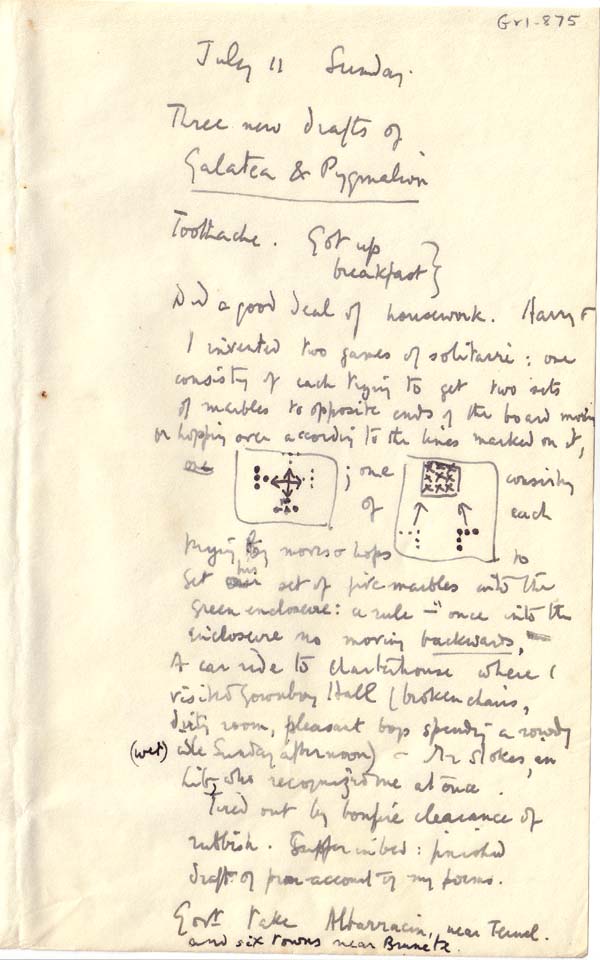 Gr1-875
July 11 Sunday.
Three new drafts of
Galatea & Pygmalion
Toothache. Got up
breakfast }
Did a good deal of housework. Harry &
I invented two games of solitaire: one
consisting of each trying to get two sets
of marbles to opposite ends of the board moving
or hopping over according to the lines marked on it,
one ; one consisting
of each
trying by moves & hops to
get his set of five marbles into the
green enclosure: a rule – "once into the
enclosure no moving backwards,"
A car ride to Charterhouse where I
visited Gownboy Hall (broken chairs,
dirty room, pleasant boys spending a rowdy
(wet) idle Sunday afternoon) – Mr Stokes, in
Lib, who recognized me at once.
Tired out by bonfire clearance of
rubbish. Supper in bed: finished
draft of account of my poems.
Govt. take Albarracin, near Teruel.
and six towns near Brunete.